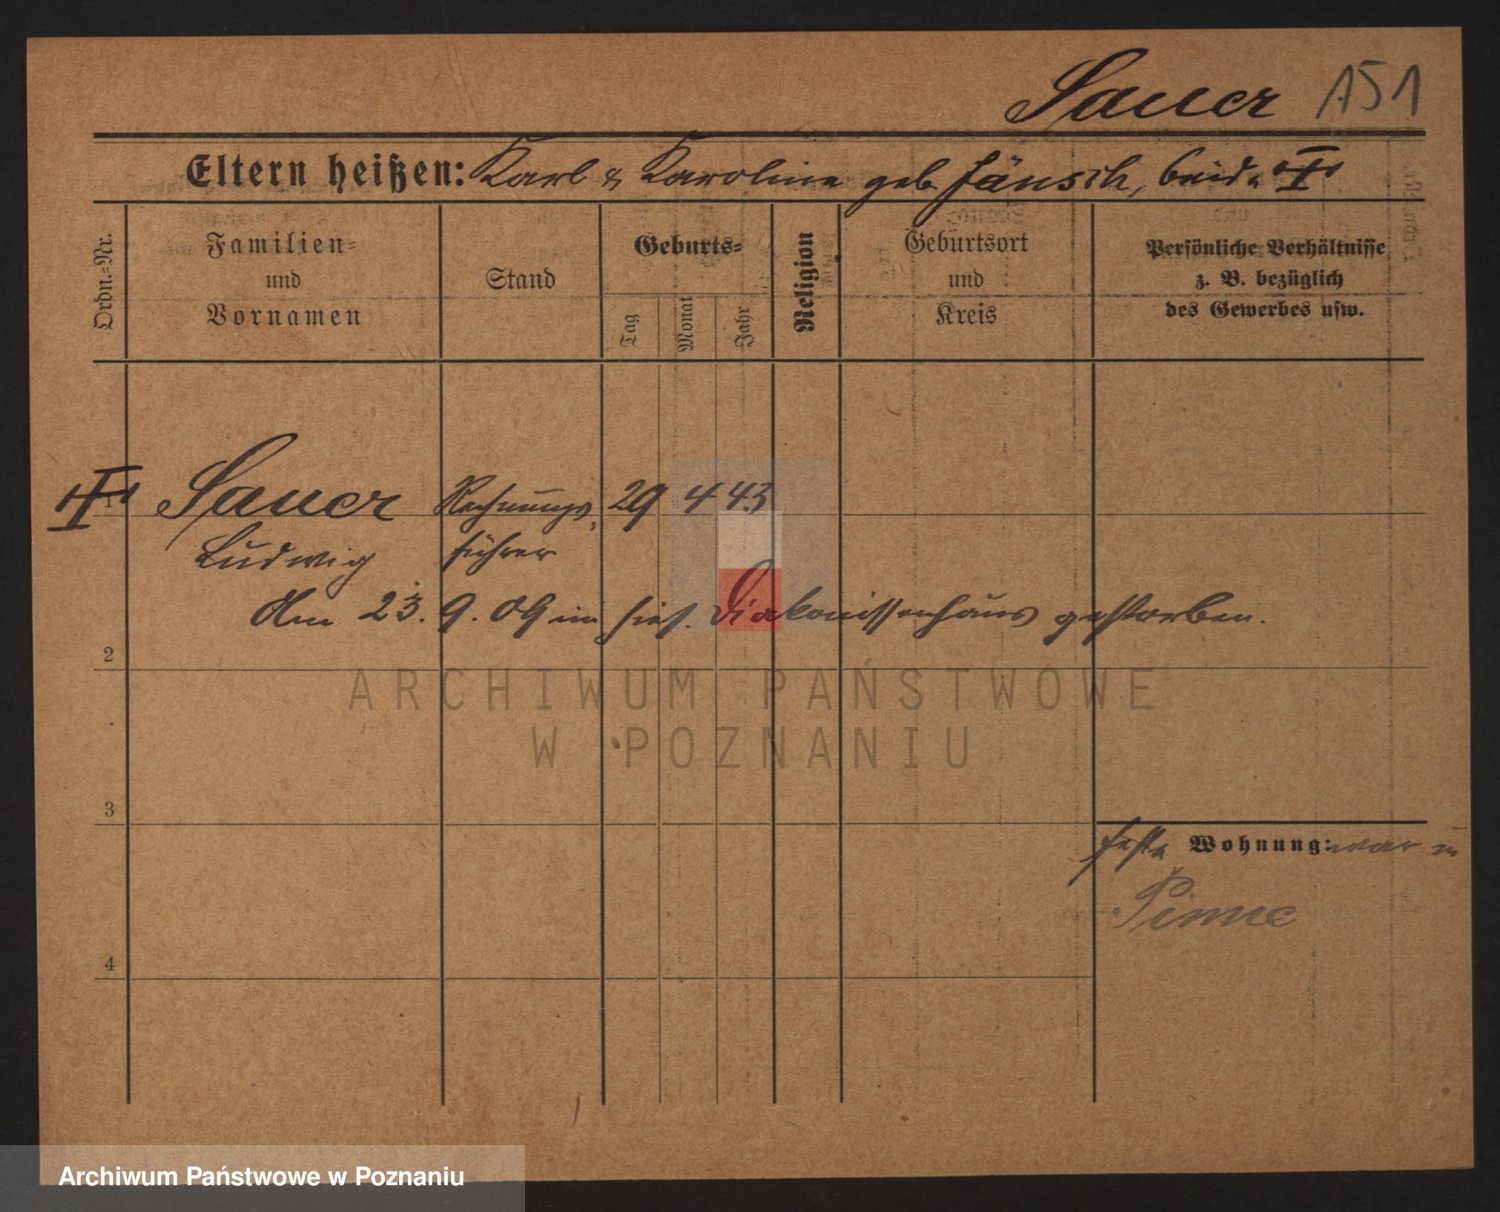 Sauer 151
Eltern heißen: Karl & Karoline geb. Jänsch, beide
Ordn.-Nr.
Familien-
und
Vornamen
Stand
Geburts-
Tag
Monat
Jahr
Religion
Geburtsort
und
Kreis
Persönliche Verhältnisse
z. B. bezüglich
des Gewerbes usw.
1 Sauer Rechnungs- 29 4 43
Ludwig führer
Am 23. 9. 09 im hies. Diakonissenhaus gestorben.
2
ARCHIWUM PAŃSTWOWE
W POZNANIU
3
feste Wohnung: war in
Pinne
4
Archiwum Państwowe w Poznaniu